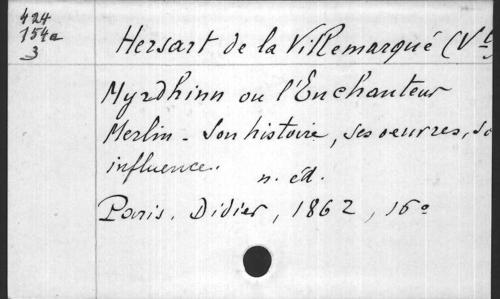 424
154a
3
Hersart de la Villemarqué (Vte
Myrdhinn ou l'Enchanteur
Merlin - Son histoire, ses oeuvres, so
influence.
n. éd.
Paris. Didier, 1862, 16°